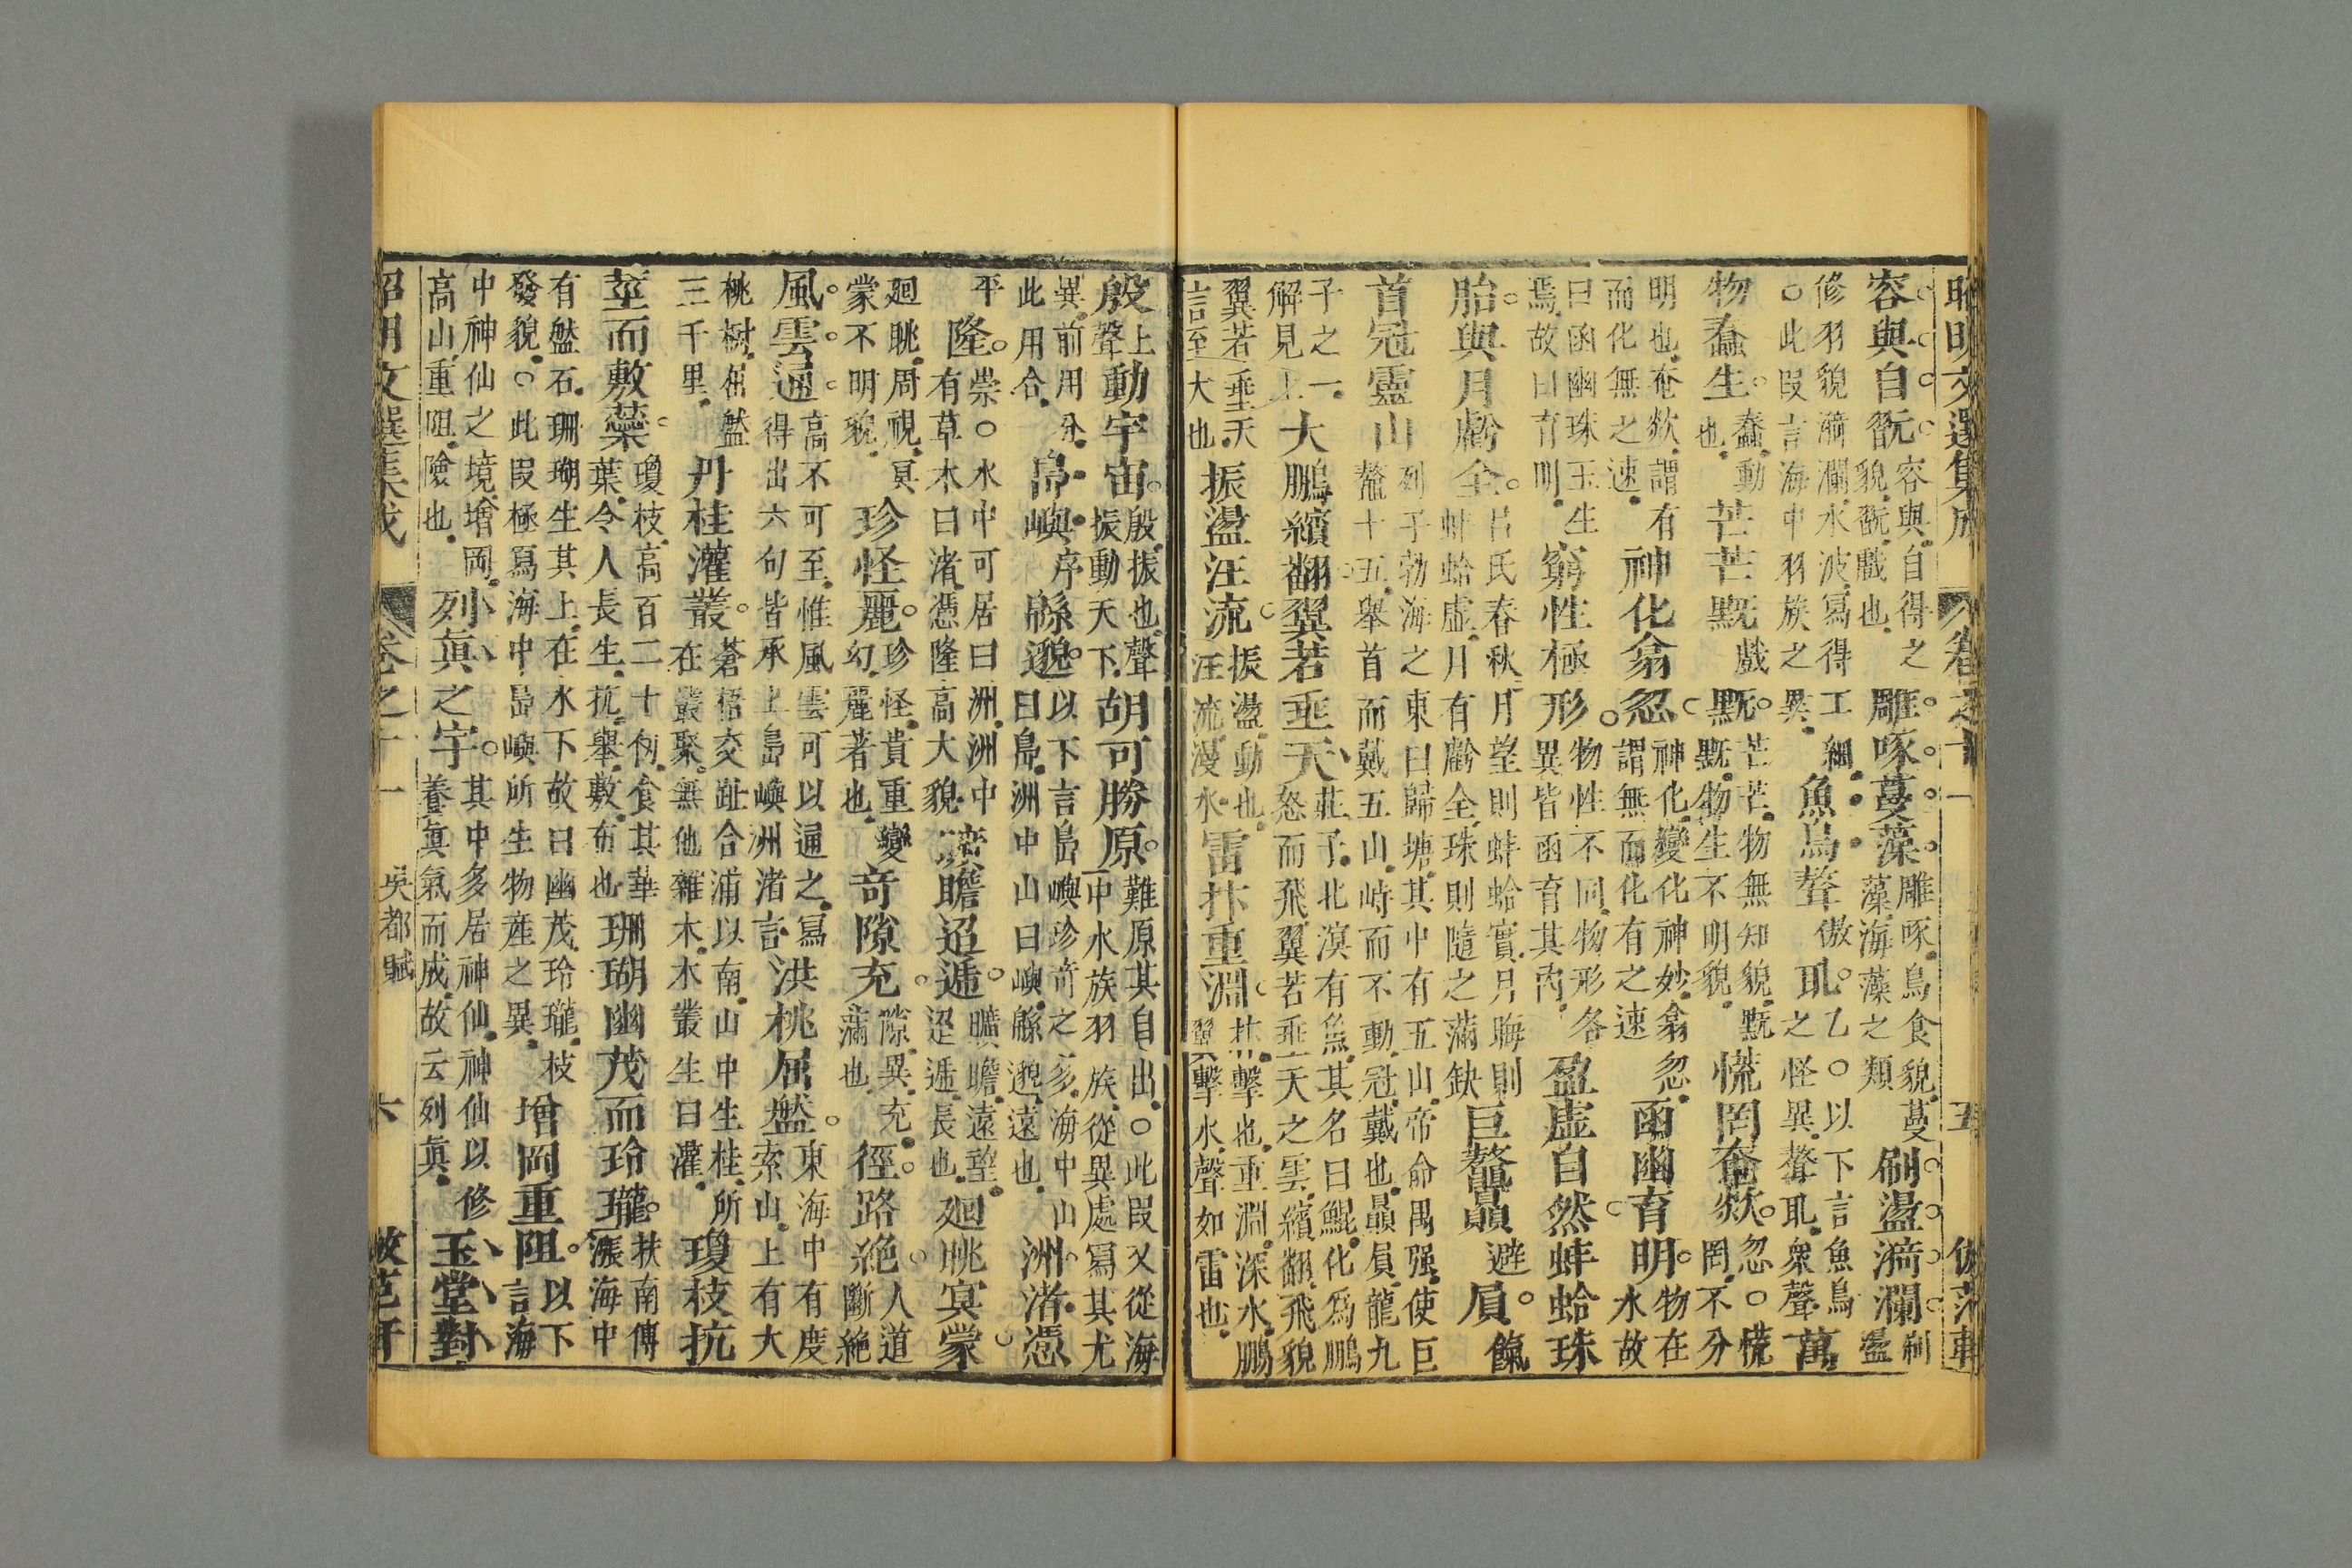 昭明文選集成 卷之十一 五
容與自翫容與自得之貌翫戲也雕啄蔓藻雕啄鳥食貌蔓藻海藻之類刷盪漪瀾刷盪
修羽貌漪瀾水波寫得工細○此叚言海中羽族之異魚鳥聱傲耴乙○以下言魚鳥之怪異聱耴衆聲萬
物蠢生蠢動也芒芒黖戲黖芒芒物無知貌黖黖物生不明貌慌罔奄欻忽○慌罔不分
明也奄欻謂有而化無之速神化翕忽神化變化神妙翕忽謂無而化有之速函幽育明物在水故
曰函幽珠玉生焉故曰育明窮性極形物性不同物形各異皆函育其內盈虛自然蚌蛤珠
胎與月虧全呂氏春秋月望則蚌蛤實月晦則蚌蛤虛月有虧全珠則隨之滿缺巨鼇贔避屓餼
首冠靈山列子勃海之東曰歸塘其中有五山帝命禺强使巨鼇十五舉首而戴五山峙而不動冠戴也贔屓龍九
子之一解見上大鵬繽翻翼若垂天莊子北溟有魚其名曰鯤化爲鵬怒而飛翼若垂天之雲繽翻飛貌
翼若垂天言至大也振盪汪流振盪動也汪流漫水雷抃重淵抃擊也重淵深水鵬翼擊水聲如雷也
殷上聲動宇宙殷振也聲振動天下胡可勝原難原其自出○此叚又從海中水族羽族從異處寫其尤
異前用分此用合島嶼序緜邈以下言島嶼珍奇之多海中山曰島洲中山曰嶼緜邈遠也洲渚憑
平隆崇○水中可居曰洲洲中有草木曰渚憑隆高大貌曠瞻迢遞曠瞻遠望迢遞長也廻眺冥蒙
廻眺周視冥蒙不明貌珍怪麗珍怪貴重變幻麗著也奇隙充隙異充滿也徑路絕人道斷絕
風雲通高不可至惟風雲可以通之寫得出六句皆承上島嶼洲渚言洪桃屈盤東海中有度索山上有大
桃樹屈盤三千里丹桂灌叢蒼梧交趾合浦以南山中生桂所在叢聚無他雜木木叢生曰灌瓊枝抗
莖而敷蘂瓊枝高百二十仞食其華葉令人長生抗舉敷布也珊瑚幽茂而玲瓏扶南傳漲海中
有盤石珊瑚生其上在水下故曰幽茂玲瓏枝發貌○此叚極寫海中島嶼所生物產之異增岡重阻以下言海
中神仙之境增岡高山重阻險也列眞之宇其中多居神仙神仙以修養眞氣而成故云列眞玉堂對
昭明文選集成 卷之十一 吳都賦 六 倣范軒